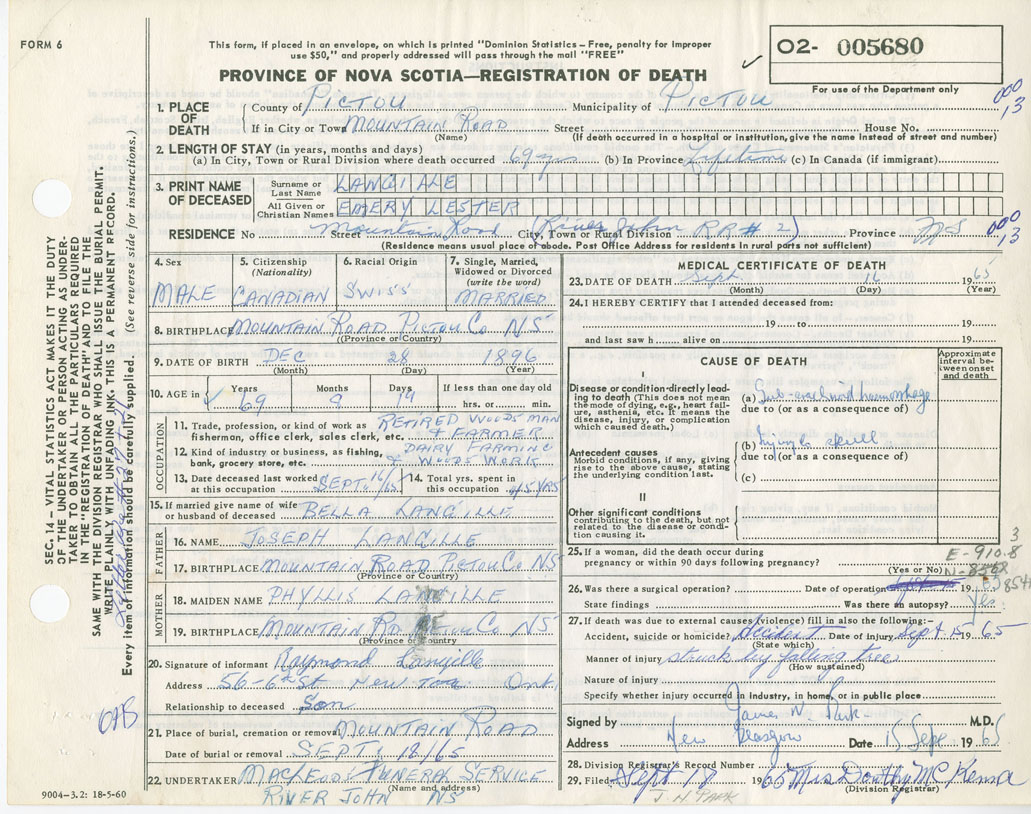 FORM 6
This form, if placed in an envelope, on which is printed "Dominion Statistics – Free, penalty for improper
use $50," and properly addressed will pass through the mail "FREE"
PROVINCE OF NOVA SCOTIA—REGISTRATION OF DEATH
O2- 005680
For use of the Department only
1. PLACE OF DEATH
County of PICTOU Municipality of PICTOU
000
13
If in City or Town MOUNTAIN ROAD Street House No.
(Name) (If death occurred in a hospital or institution, give the name instead of street and number)
2. LENGTH OF STAY (in years, months and days)
(a) In City, Town or Rural Division where death occurred 69 yrs (b) In Province Lifetime (c) In Canada (if immigrant)
3. PRINT NAME OF DECEASED
Surname or Last Name LANGILLE
All Given or Christian Names EMERY LESTER
RESIDENCE No Street Mountain Road City, Town or Rural Division (River John RR # 2) Province NS
000
13
(Residence means usual place of abode. Post Office Address for residents in rural parts not sufficient)
4. Sex MALE
5. Citizenship (Nationality) CANADIAN
6. Racial Origin SWISS
7. Single, Married, Widowed or Divorced (write the word) MARRIED
8. BIRTHPLACE MOUNTAIN ROAD PICTOU CO NS
(Province or Country)
9. DATE OF BIRTH DEC 28 1896
(Month) (Day) (Year)
10. AGE in Years 69 Months 9 Days 19 If less than one day old hrs. or min.
OCCUPATION
11. Trade, profession, or kind of work as fisherman, office clerk, sales clerk, etc. RETIRED WOODSMAN & FARMER
12. Kind of industry or business, as fishing, bank, grocery store, etc. DAIRY FARMING & WOODS WORK
13. Date deceased last worked at this occupation SEPT. 16/65
14. Total yrs. spent in this occupation 45 YRS
15. If married give name of wife or husband of deceased BELLA LANGILLE
FATHER
16. NAME JOSEPH LANGILLE
17. BIRTHPLACE MOUNTAIN ROAD PICTOU CO NS
(Province or Country)
MOTHER
18. MAIDEN NAME PHYLLIS LANGILLE
19. BIRTHPLACE MOUNTAIN ROAD PICTOU CO NS
(Province or Country)
20. Signature of informant Raymond Langille
Address 56-6th St New Toronto Ont.
Relationship to deceased Son
21. Place of burial, cremation or removal MOUNTAIN ROAD
Date of burial or removal SEPT. 18/65
22. UNDERTAKER MACLEODS FUNERAL SERVICE
(Name and address)
RIVER JOHN NS
MEDICAL CERTIFICATE OF DEATH
23. DATE OF DEATH Sept. 16 1965
(Month) (Day) (Year)
24. I HEREBY CERTIFY that I attended deceased from:
19 to 19
and last saw h alive on 19
CAUSE OF DEATH
Approximate interval between onset and death
I
Disease or condition directly leading to death (This does not mean the mode of dying, e.g., heart failure, asthenia, etc. It means the disease, injury, or complication which caused death.)
(a) Sub-arachnoid hemorrhage
due to (or as a consequence of)
Antecedent causes
Morbid conditions, if any, giving rise to the above cause, stating the underlying condition last.
(b) Injury to skull
due to (or as a consequence of)
(c)
II
Other significant conditions
contributing to the death, but not related to the disease or condition causing it.
3
25. If a woman, did the death occur during
pregnancy or within 90 days following pregnancy?
(Yes or No)
E-910.8
26. Was there a surgical operation? Date of operation 19
State findings Was there an autopsy? Yes
27. If death was due to external causes (violence) fill in also the following:–
Accident, suicide or homicide? Accident Date of injury Sept 15 1965
(State which)
Manner of injury struck by falling tree
(How sustained)
Nature of injury
Specify whether injury occurred in industry, in home, or in public place
Signed by James N. Park M.D.
Address New Glasgow Date 15 Sept 1965
28. Division Registrar's Record Number
29. Filed Sept 18 1965 Mrs Dorothy McKenna
(Division Registrar)
J. N. PARK
SEC. 14 – VITAL STATISTICS ACT MAKES IT THE DUTY
OF THE UNDERTAKER OR PERSON ACTING AS UNDER-
TAKER TO OBTAIN ALL THE PARTICULARS REQUIRED
IN THE "REGISTRATION OF DEATH" AND TO FILE THE
SAME WITH THE DIVISION REGISTRAR WHO SHALL ISSUE THE BURIAL PERMIT.
WRITE PLAINLY, WITH UNFADING INK—THIS IS A PERMANENT RECORD.
Every item of information should be carefully supplied. (See reverse side for instructions.)
9004-3.2: 18-5-60